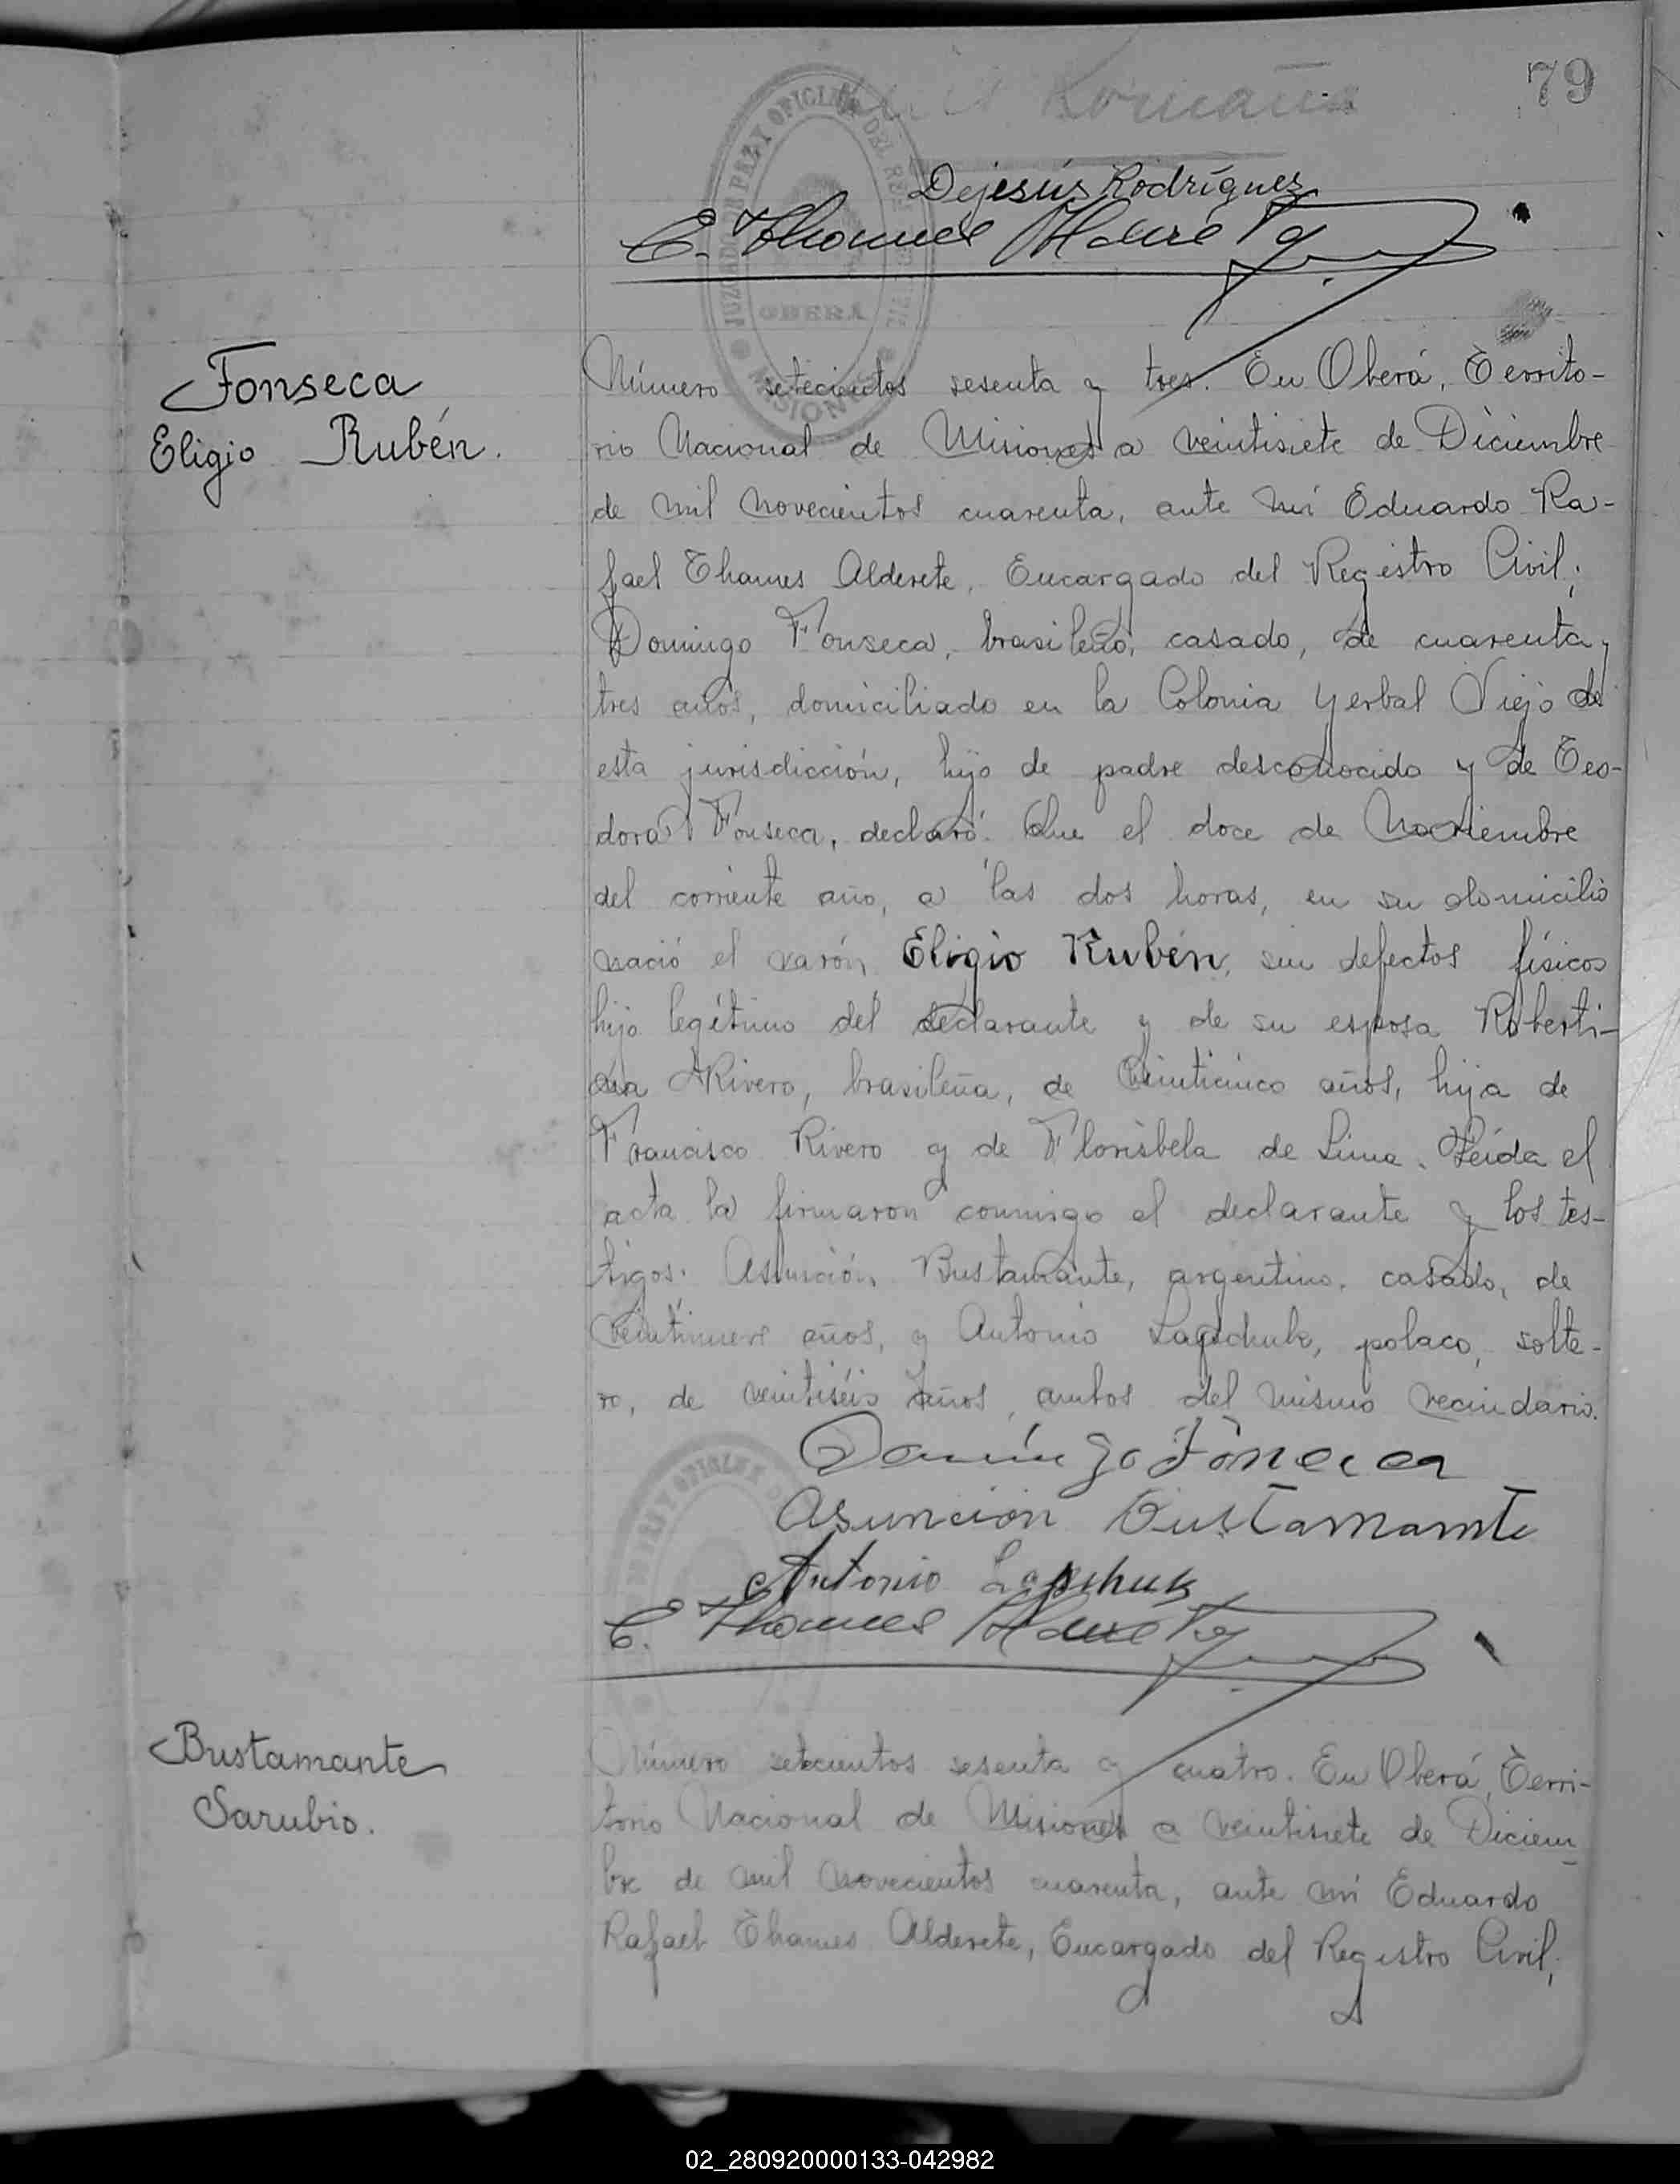 79
Romaña
Dejesús Rodríguez
E. Thames Alderete
JUZGADO DE PAZ Y OFICINA DEL REG
OBERÁ
MISIONES
Fonseca
Eligio Rubén.
Número setecientos sesenta y tres. En Oberá, Territo-
rio Nacional de Misiones a veintisiete de Diciembre
de mil novecientos cuarenta, ante mí Eduardo Ra-
fael Thames Alderete, Encargado del Registro Civil;
Domingo Fonseca, brasileño, casado, de cuarenta y
tres años, domiciliado en la Colonia Yerbal Viejo de
esta jurisdicción, hijo de padre desconocido y de Teo-
dora Fonseca, declaró: Que el doce de Noviembre
del corriente año, a las dos horas, en su domicilio
nació el varón Eligio Rubén, sin defectos físicos
hijo legítimo del declarante y de su esposa Roberti-
na Rivero, brasileña, de veinticinco años, hija de
Francisco Rivero y de Florisbela de Lima. Leída el
acta la firmaron conmigo el declarante y los tes-
tigos: Asunción Bustamante, argentino, casado, de
veintinueve años, y Antonio Lapchuk, polaco, solte-
ro, de veintiséis años, ambos del mismo vecindario.
Domingo Fonseca
Asunción Bustamante
Antonio Lapchuk
E. Thames Alderete
Bustamante
Sarubio.
Número setecientos sesenta y cuatro. En Oberá, Terri-
torio Nacional de Misiones a veintisiete de Diciem
bre de mil novecientos cuarenta, ante mí Eduardo
Rafael Thames Alderete, Encargado del Registro Civil;
02_280920000133-042982